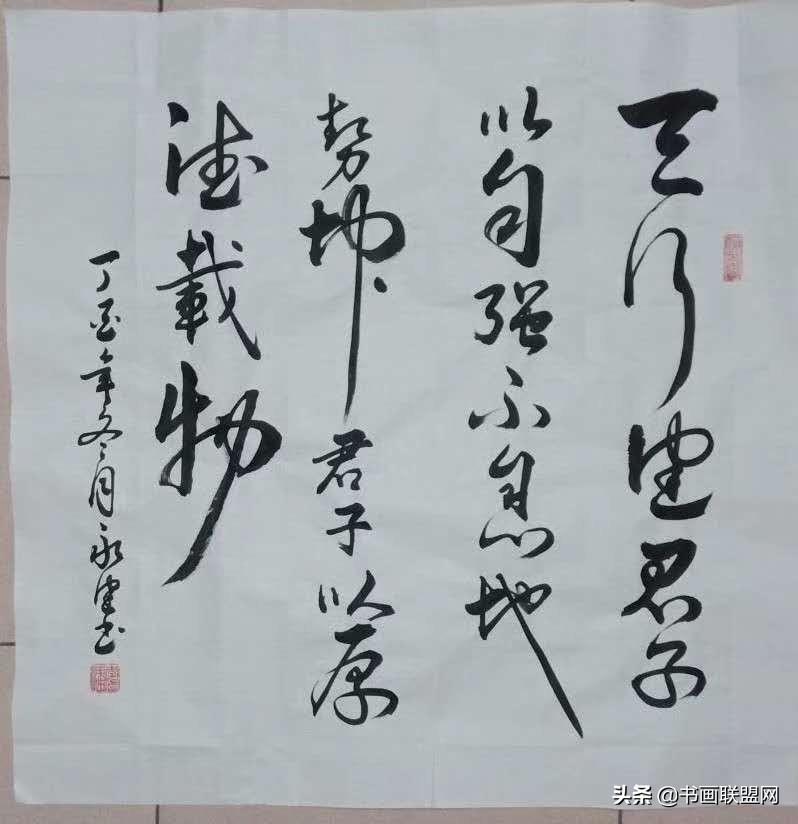 天行健君子
以自强不息地
势坤君子以厚
德载物
丁酉年冬月永健书
头条 @书画联盟网